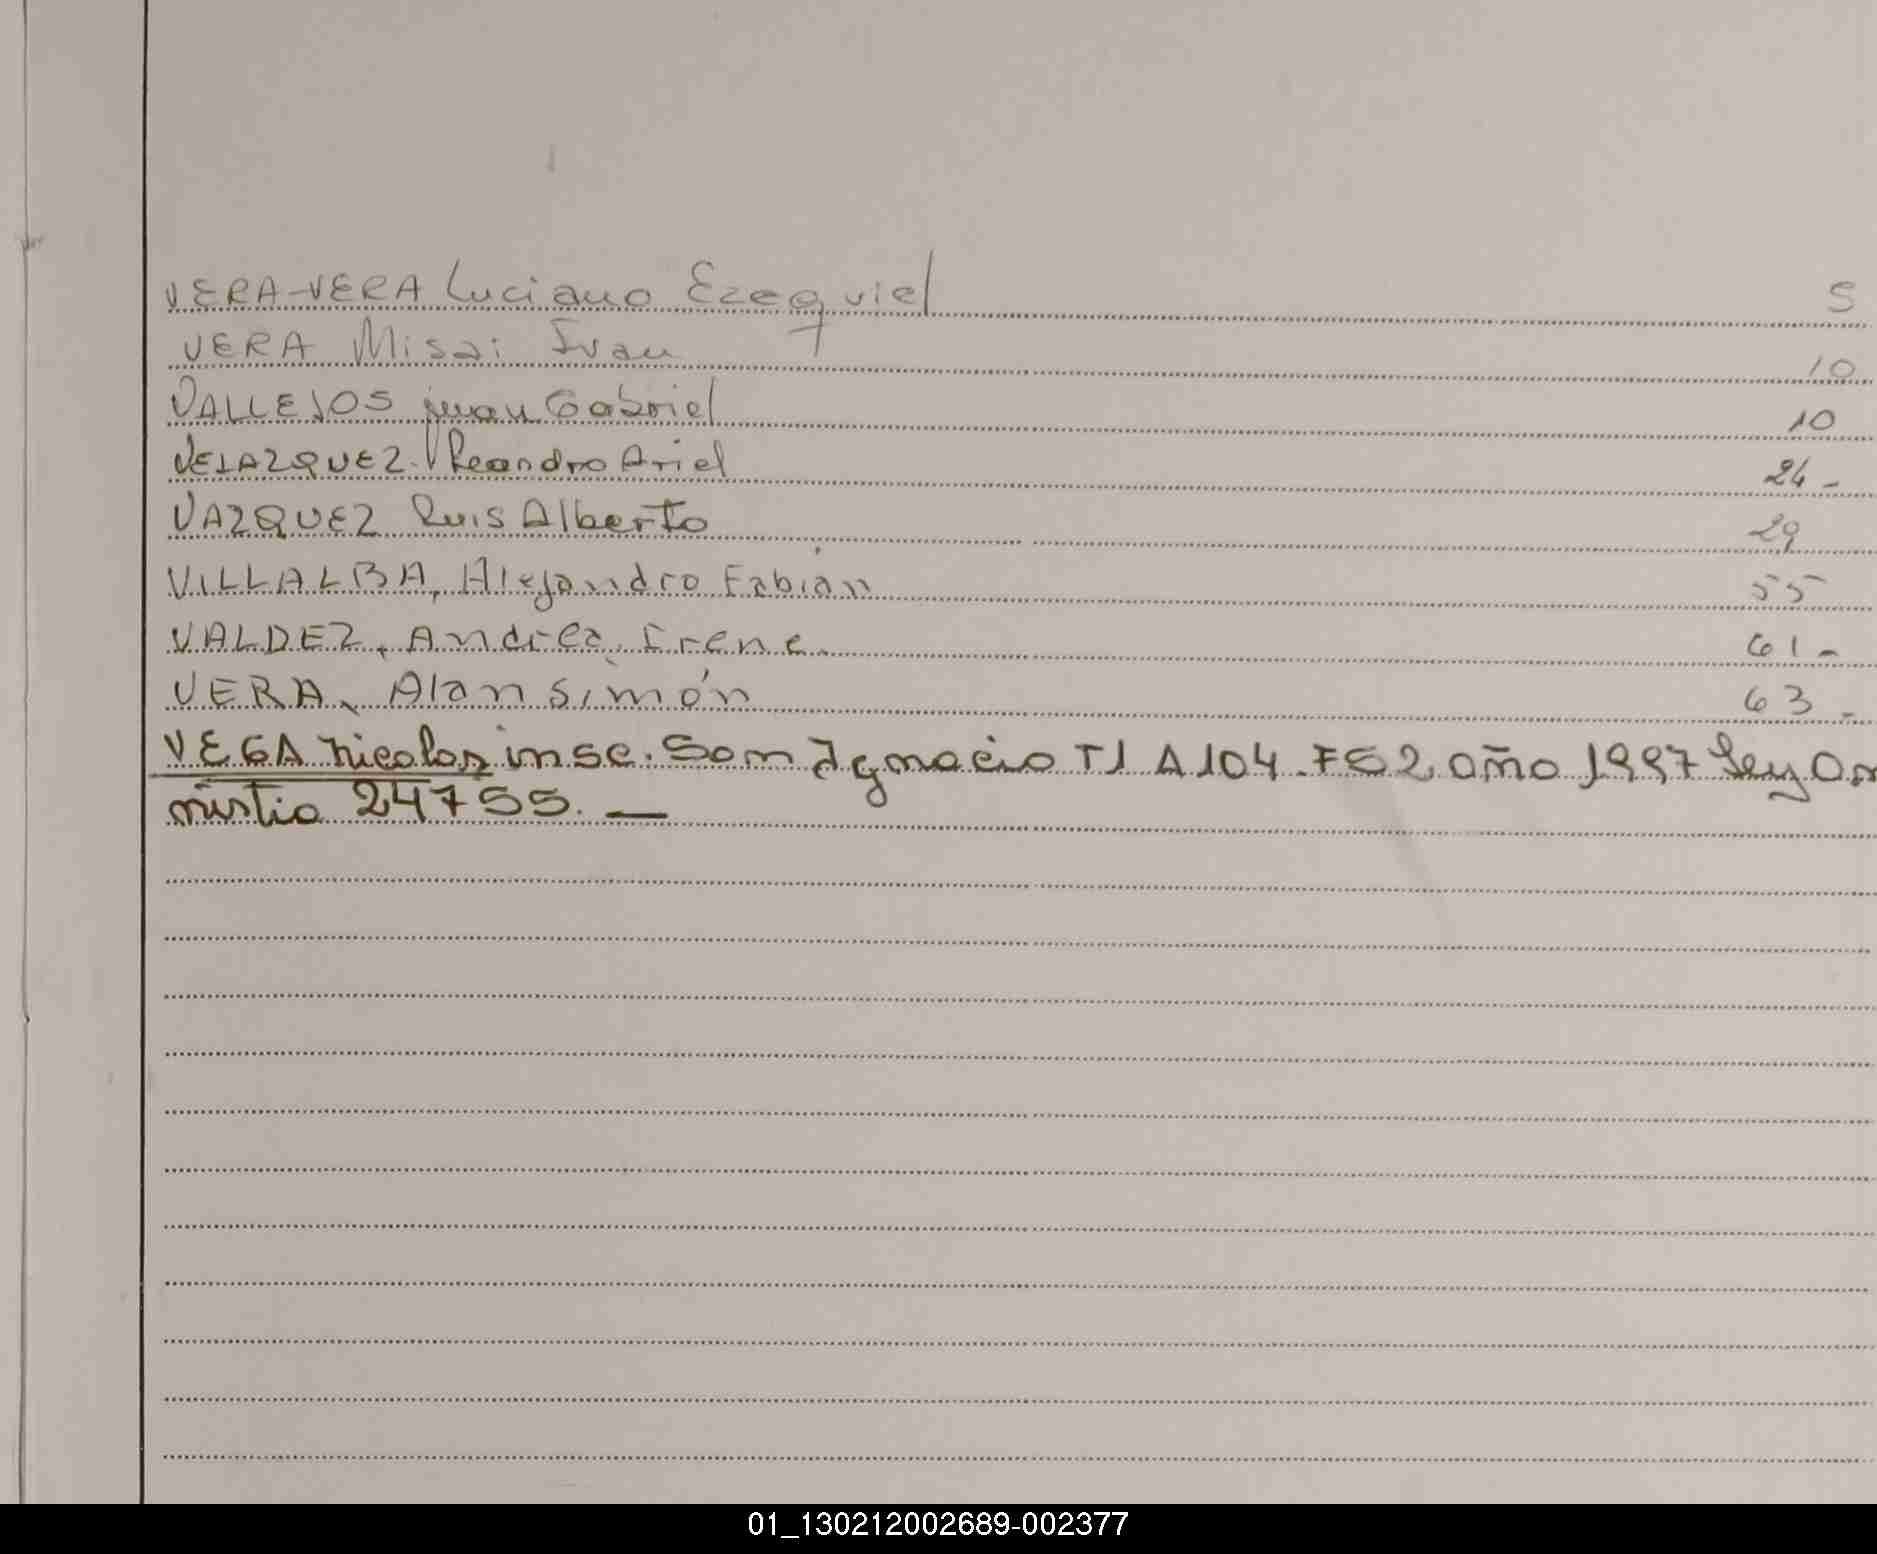 VERA-VERA Luciano Ezequiel 5
VERA Misai Ivan 10
VALLEJOS juan Gabriel 10
VELAZQUEZ. Leandro Ariel 24-
VAZQUEZ Luis Alberto 29
VILLALBA, Alejandro Fabián 55
VALDEZ, Andrea, Irene. 61-
VERA, Alan simón 63-
VEGA Nicolas insc. San Ignacio T1 A 104 F52 año 1997 Ley Am
nistia 24755. —
01_130212002689-002377